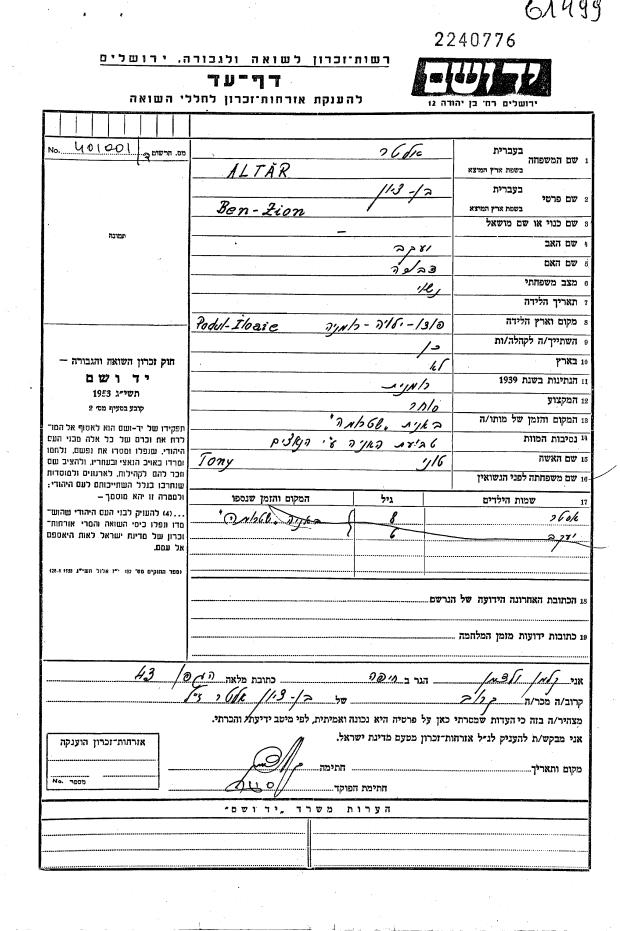 61499
2240776
יד ושם
ירושלים רח׳ בן יהודה 12
רשות־זכרון לשואה ולגבורה, ירושלים
דף־עד
להענקת אזרחות־זכרון לחללי השואה
No. 401001 מס. הרשום
תמונה
1 שם המשפחה בעברית אלטר
בשפת ארץ המוצא ALTĂR
2 שם פרטי בעברית בן-ציון
בשפת ארץ המוצא Ben-Zion
3 שם כנוי או שם מושאל –
4 שם האב יעקב
5 שם האם
6 מצב משפחתי נשוי
7 תאריך הלידה
8 מקום וארץ הלידה רומניה Podul-Iloaie
9 השתייך/ה לקהלה/ות כן
10 בארץ לא
11 הנתינות בשנת 1939 רומנית
12 המקצוע סוחר
13 המקום והזמן של מותו/ה באנית "סטרומה"
14 נסיבות המוות טביעת האניה ע״י הנאצים
15 שם האשה טוני Tony
16 שם משפחתה לפני הנשואין
17 שמות הילדים גיל המקום והזמן שנספו
אסתר 8 באניה "סטרומה"
יעקב 6
18 הכתובת האחרונה הידועה של הנרשם
19 כתובות ידועות מזמן המלחמה
חוק זכרון השואה והגבורה —
יד ושם
תשי״ג 1953
קובע בסעיף מס׳ 2
תפקידו של יד־ושם הוא לאסוף אל המו־
לדת את זכרם של כל אלה מבני העם
היהודי, שנפלו ומסרו את נפשם, נלחמו
ומרדו באויב הנאצי ובעוזריו, ולהציב שם
וזכר להם לקהילות, לארגונים ולמוסדות
שנחרבו בגלל השתייכותם לעם היהודי;
ולמטרה זו יהא מוסמך –
...(4) להעניק לבני העם היהודי שהוש־
מדו ונפלו בימי השואה והמרי אזרחות־
זכרון של מדינת ישראל לאות היאספם
אל עמם.
אני קלמן ולדמן הגר ב חיפה כתובת מלאה הגפן 43
קרוב/ה מכר/ה קרוב של בן-ציון אלטר ז״ל
מצהיר/ה בזה כי העדות שמסרתי כאן על פרטיה היא נכונה ואמיתית, לפי מיטב ידיעתי והכרתי.
אני מבקש/ת להעניק לנ״ל אזרחות־זכרון מטעם מדינת ישראל.
מקום ותאריך חתימה
חתימת הפוקד
אזרחות־זכרון הוענקה
No. מספר
הערות משרד "יד ושם"